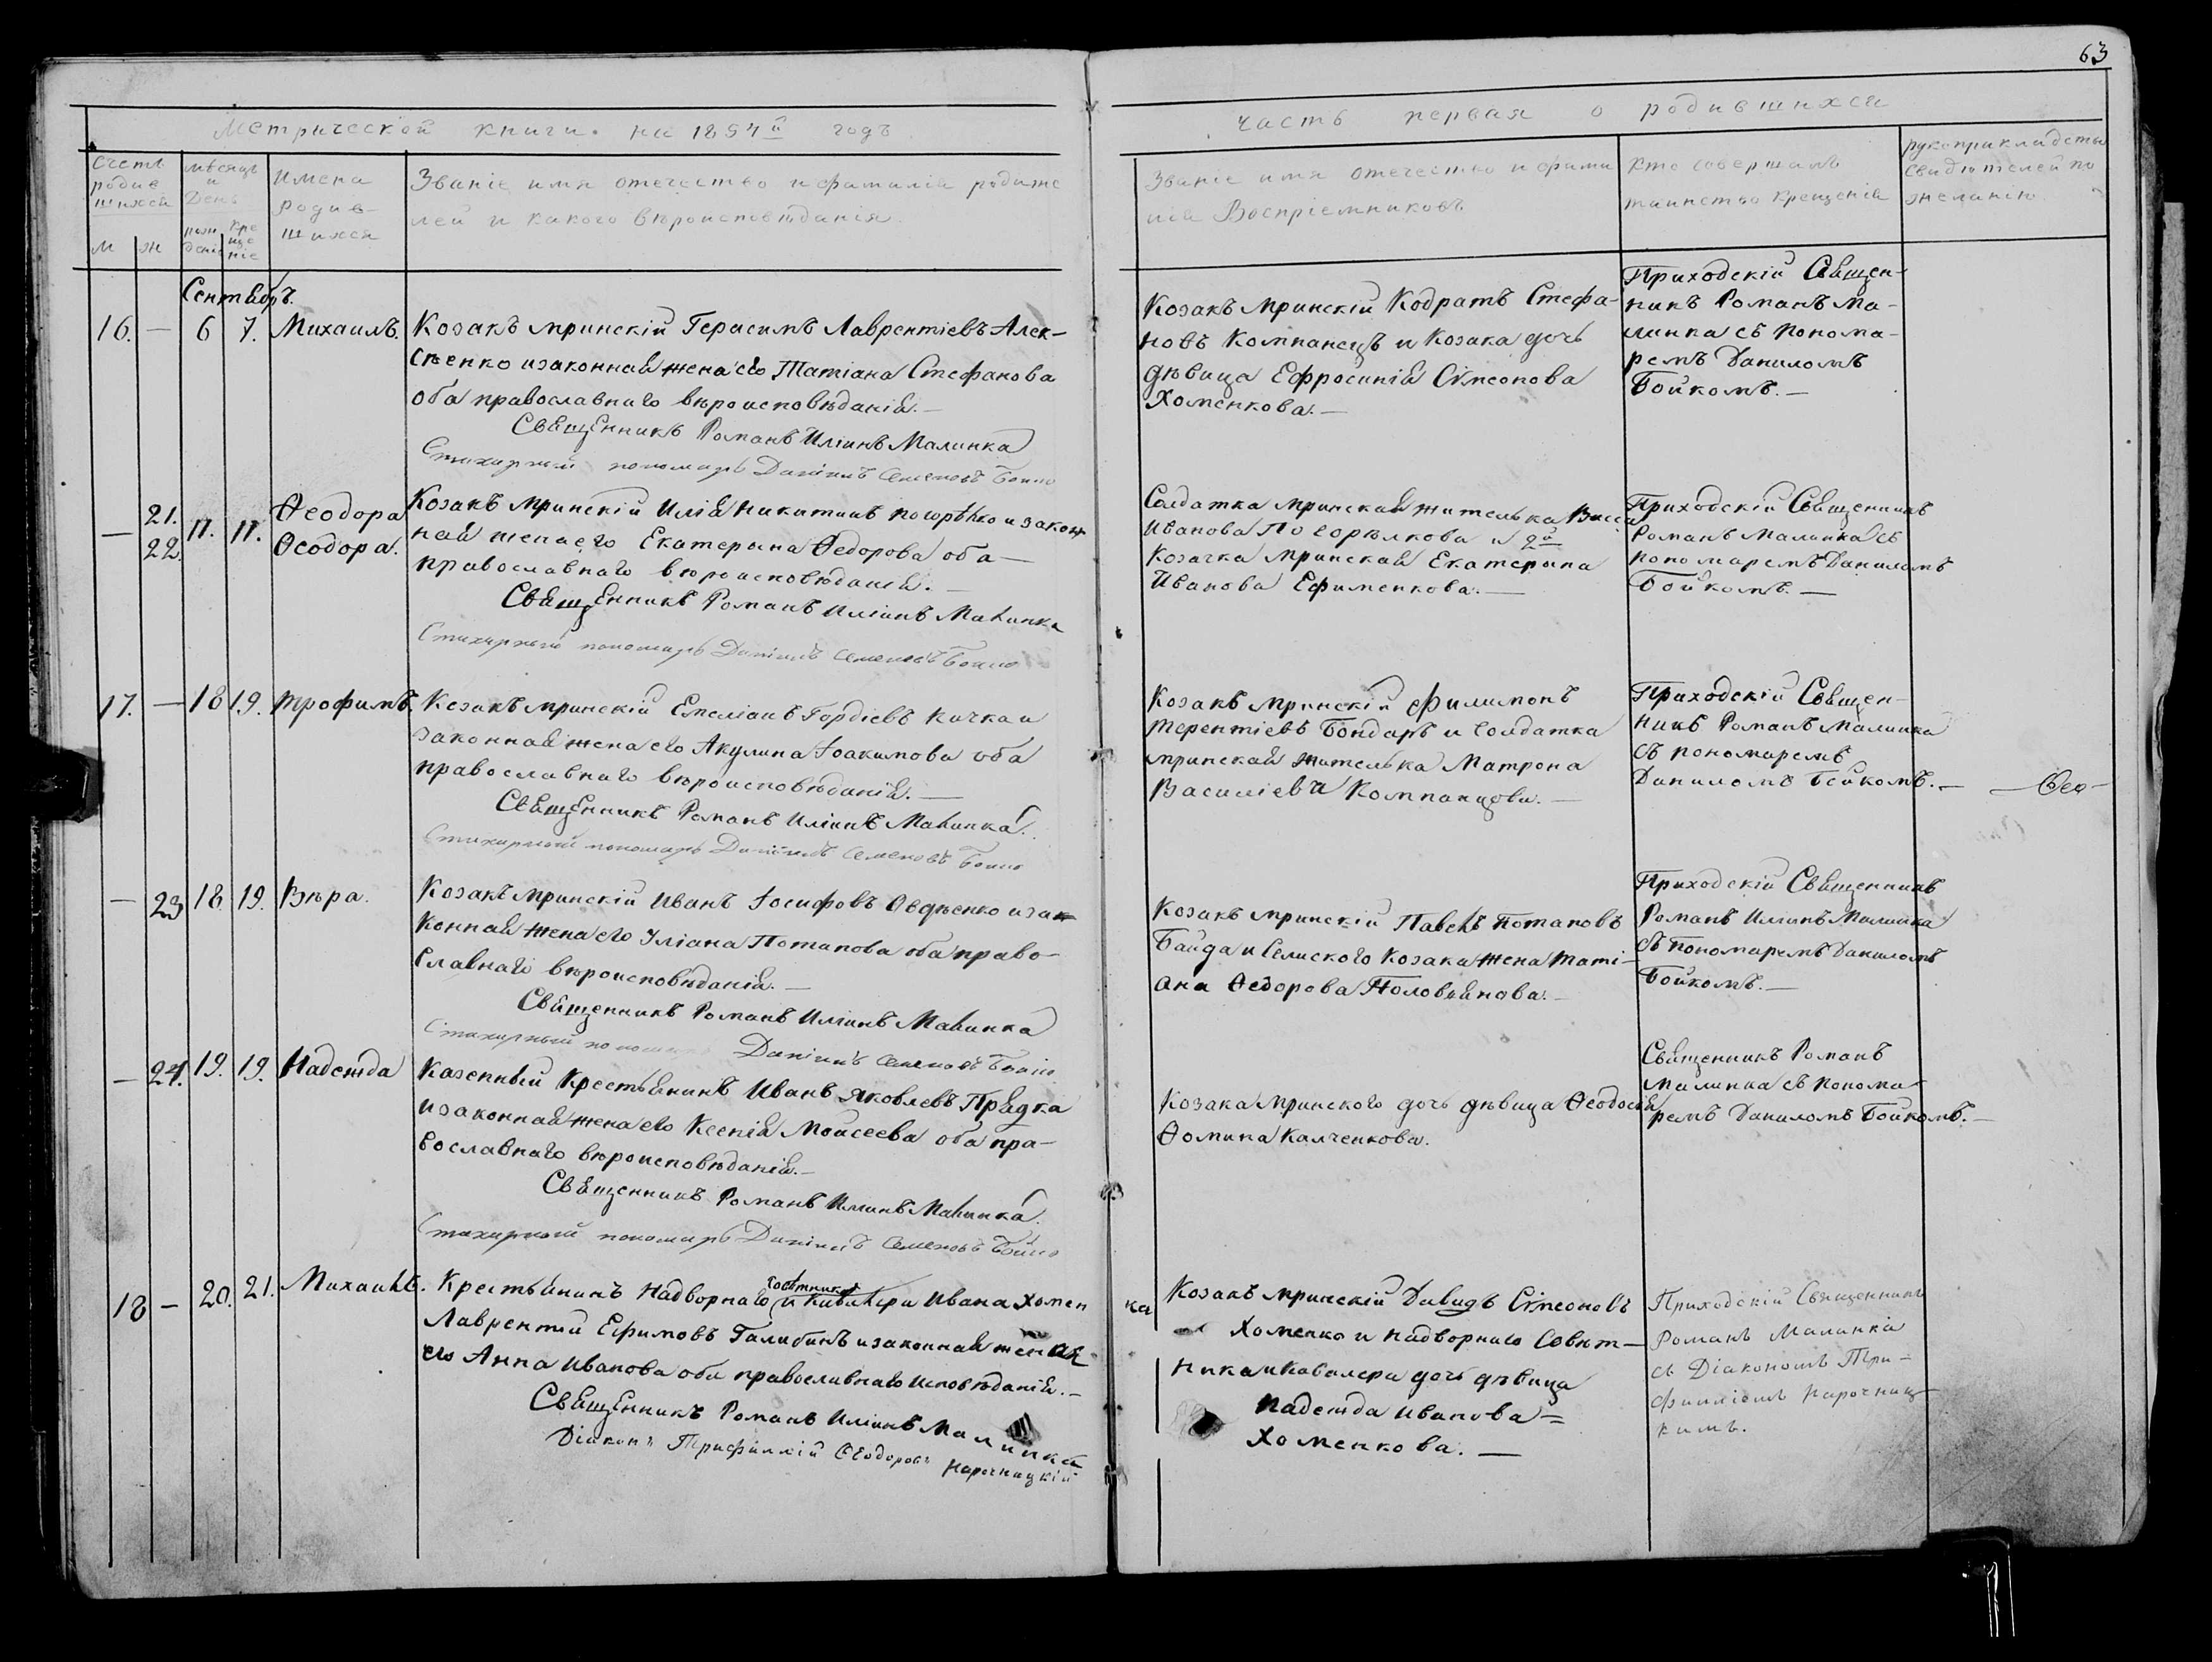 63
Метрической книги на 1857й годъ
Часть первая о родившихся
Счетъ родив шихся
м ж
мѣсяцъ и День
рож денія кре ще ніе
имена родив- шихся
Званіе имя отечество и фамилія родите
лей и какого вѣроисповѣданія
Званіе имя отечество и фами
лія Воспріемниковъ
кто совершалъ
таинство крещенія
рукоприкладства
свидѣтелей по
желанію
Сентябрь.
16. — 6 7. Михаилъ.
Козакъ мринскій Герасимъ Лаврентіевъ Алек-
сѣенко изаконная жена его Татіана Стефанова
оба православнаго вѣроисповѣданія.—
Священникъ Романъ Иліинъ Малинка
Стихарный пономарь Даніилъ Семеновъ Бойко
Козакъ Мринскій Кодратъ Стефа-
новъ Компанецъ и Козака дочь
дѣвица Ефросинія Сімеонова
Хоменкова.—
Приходскій Священ-
никъ Романъ Ма-
линка съ понома-
ремъ Даниломъ
Бойкомъ.—
— 21. 22. 17. 17. Ѳеодора Ѳеодора.
Козакъ Мринскій Илія Никитинъ Погорѣлко и закон
ная жена его Екатерина Ѳедорова оба—
православнаго вѣроисповѣданія.—
Священникъ Романъ Иліинъ Малинка
Стихарный пономарь Даніилъ Семеновъ Бойко
Солдатка мринская жителька Васса
Иванова Погорѣлкова и 2й
Козачка Мринская Екатерина
Иванова Ефименкова.—
Приходскій Священникъ
Романъ Малинка съ
пономаремъ Даниломъ
Бойкомъ.—
17. — 18 19. Трофимъ.
Козакъ мринскій Емеліанъ Гордіевъ Качка и
законная жена его Акулина Іоакимова оба
православнаго вѣроисповѣданія.—
Священникъ Романъ Иліинъ Малинка.
Стихарный пономарь Даніилъ Семеновъ Бойко
Козакъ Мринскій Филимонъ
Терентіевъ Бондарь и Солдатка
мринская жителька Матрона
Василіева Компанцова.—
Приходскій Священ-
никъ Романъ Малинка
съ пономаремъ
Даниломъ Бойкомъ.—
— Ѳео-
— 23 18. 19. Вѣра.
Козакъ Мринскій Иванъ Іосифовъ Овдѣенко и зак
конная жена его Уліана Потапова оба право-
славнаго вѣроисповѣданія.—
Священникъ Романъ Иліинъ Малинка
Стихарный пономарь Даніилъ Семеновъ Бойко
Козакъ Мринскій Павелъ Потаповъ
Байда и Селиского Козака жена Таті-
ана Ѳедорова Половянова.—
Приходскій Священникъ
Романъ Иліинъ Малинка
съ Пономаремъ Даниломъ
Бойкомъ.—
— 24. 19. 19. Надежда
Казенный Крестьянинъ Иванъ Яковлевъ Прядка
изаконная жена его Ксенія Моисеева оба пра-
вославнаго вѣроисповѣданія.—
Священникъ Романъ Иліинъ Малинка.
Стихарный пономарь Даніилъ Семеновъ Бойко
Козака Мринского дочь дѣвица Ѳеодосія
Ѳомина Калченкова.
Священникъ Романъ
Малинка съ понома-
ремъ Даниломъ Бойкомъ.—
18 — 20. 21. Михаилъ.
Крестьянинъ Надворнаго совѣтника и Кавалера Ивана Хомен
ка
Лаврентій Ефимовъ Галибинъ изаконная жена
его Анна Иванова оба православнаго исповѣданія.—
Священникъ Романъ Иліинъ Малинка
Діаконъ Трифиллій Ѳеодоровъ Нарочницкій
Козакъ мринскій Давидъ Сімеоновъ
Хоменко и надворнаго Совѣт—
ника и Кавалера дочь дѣвица
Надежда Иванова=
Хоменкова.—
Приходскій Священникъ
Романъ Малинка
съ Діакономъ Три-
филліемъ Нарочниц-
кимъ.